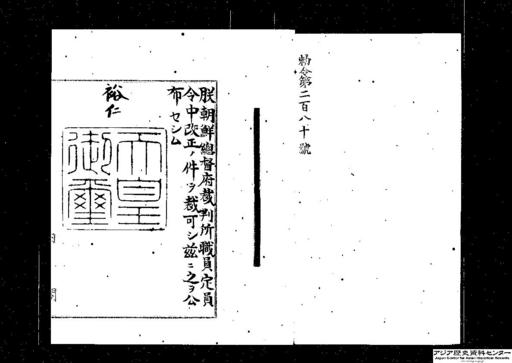 勅令第二百八十號
朕朝鮮總督府裁判所職員定員
令中改正ノ件ヲ裁可シ茲ニ之ヲ公
布セシム
裕仁
天皇
御璽
内閣
アジア歴史資料センター
Japan Center for Asian Historical Records